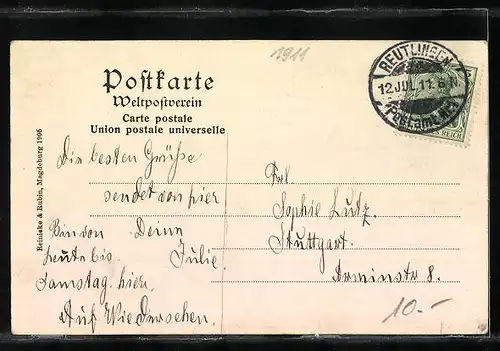 1911
Postkarte
Weltpostverein
Carte postale
Union postale universelle
REUTLINGEN
12.JUL.11.6-
Postamt Nr.1
REICH
Reinicke & Rubin, Magdeburg 1905
Die besten Grüße
sendet von hier
Deine
Julie.
Bin von
heute bis
Samstag hier.
Auf Wiedersehen.
Frl.
Sophie Lutz.
Stuttgart.
Arminstr 8.
10.-